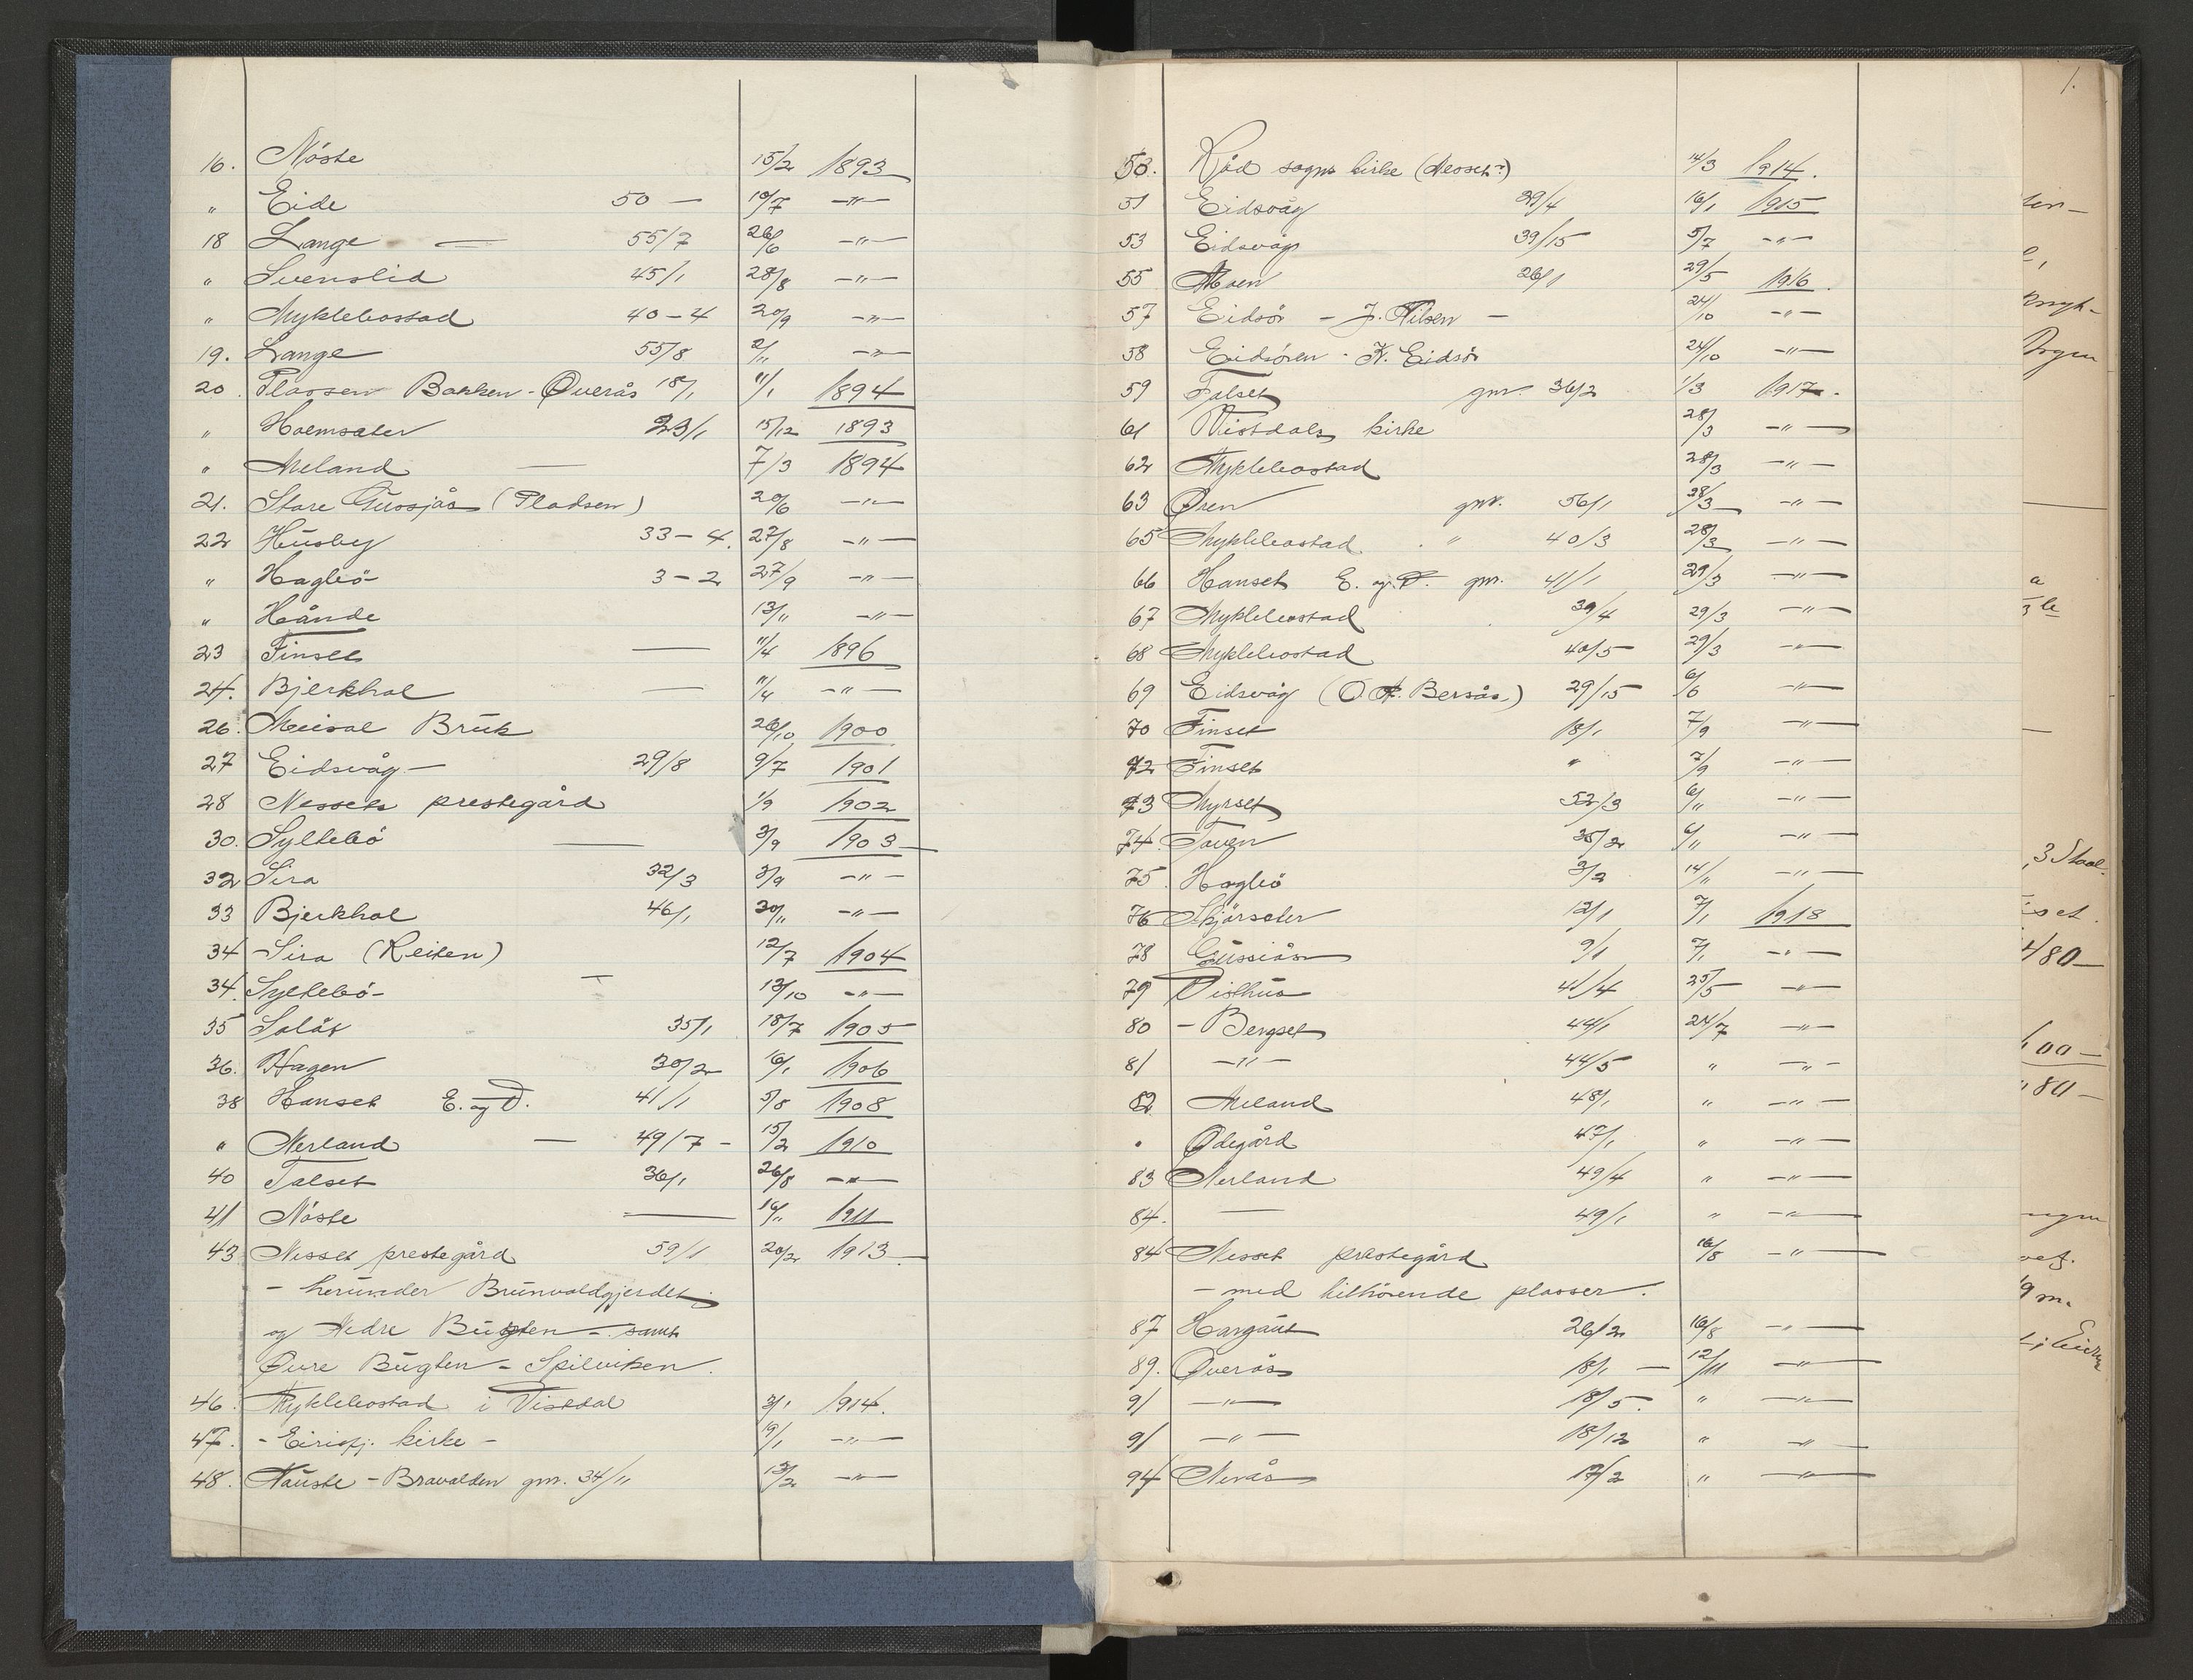 16. Nöste 15/2 1893
" Eide 50 — 10/7 —"—
18 Lange — 55/7 26/6 —"—
" Svenslid 45/1 28/8 —"—
" Myklebostad 40-4 20/9 —"—
19. Lange 55/8 2/11 —"—
20. Plassen Bakken - Överås 18/1 11/1 1894
" Holmsæter 23/1 15/12 1893
" Meland — 7/3 1894
21. Stare Gussjås (Pladsen) 20/6 —"—
22 Husby 33-4. 27/8 —"—
" Hagbö 3-2 27/9 —"—
" Hånde 13/11 —"—
23 Finset — 11/4 1896
24. Bjerkhol — 11/4 —"—
26. Meisal Bruk 26/10 1900
27 Eidsvåg — 29/8 9/7 1901
28 Nessets prestegård 1/9 1902
30. Syltebö — 3/9 1903
32 Sira 32/3 3/9 —"—
33 Bjerkhol 46/1 30/11 —"—
34 Sira (Reiten) 12/7 1904
34. Syltebö — 13/10 —"—
35 Solåt 35/1 18/7 1905
36. Hagen 30/2 16/1 1906
38 Hanset E. og D. 41/1 5/8 1908
" Nerland — 49/7 - 15/2 1910
40 Talset 36/1 26/8 —"—
41 Nöste — 16/11 1911
43 Nesset prestegård 59/1 20/2 1913
- herunder Brunvoldgjerdet
og Nedre Bugten - samt
Övre Bugten - Spilviken.
46. Myklebostad i Visdal 3/1 1914.
47. - Eirisfj. kirke - 19/1 —"—
48. Nauste - Bravolden gnr. 34/11 13/2 —"—
1.
50. Rød sogns kirke (Nesset?) 14/3 1914.
51 Eidsvåg 29/4 16/1 1915
53 Eidsvåg 39/15 5/7 —"—
55 Moen 26/1 29/5 1916.
57 Eidsör - J. Nilsen — 24/10 —"—
58 Eidsören - K. Eidsör 24/10 —"—
59 Talset gnr. 36/2 1/3 1917.
61 Vistdals kirke 28/3 —"—
62 Myklebostad 28/3 —"—
63 Øren gnr. 56/1 28/3 —"—
65 Myklebostad " 40/3 28/3 —"—
66 Hanset E. og D. gnr. 41/1 29/3 —"—
67 Myklebostad 39/4 29/3 —"—
68 Myklebostad 40/5 29/3 —"—
69 Eidsvåg (O. A. Bersås.) 29/15 6/6 —"—
70 Finset 18/1 7/9 —"—
72 Finset " 7/9 —"—
73 Myrset 52/3 6/11 —"—
74. Toven 35/2 6/11 —"—
75. Hagbö 3/2 14/11 —"—
76 Skjørsæter 12/1 7/1 1918
78 Gussiås 9/1 7/1 —"—
79 Visthus 41/4 25/5 —"—
80 - Bergset 44/1 24/7 —"—
81 —"— 44/5 " —"—
82 Meland 48/1 " —"—
" Ødegård 47/1 " —"—
83 Nerland 49/4 " —"—
84. — 49/1 " —"—
84 Nesset prestegård 16/8 —"—
- med tilhörende plasser.
87 Hargaut 26/2 16/8 —"—
89. Överås 18/1 — 12/11 —"—
91 —"— 18/5. " —"—
91 —"— 18/12 " —"—
94 Nerås 17/2 " —"—